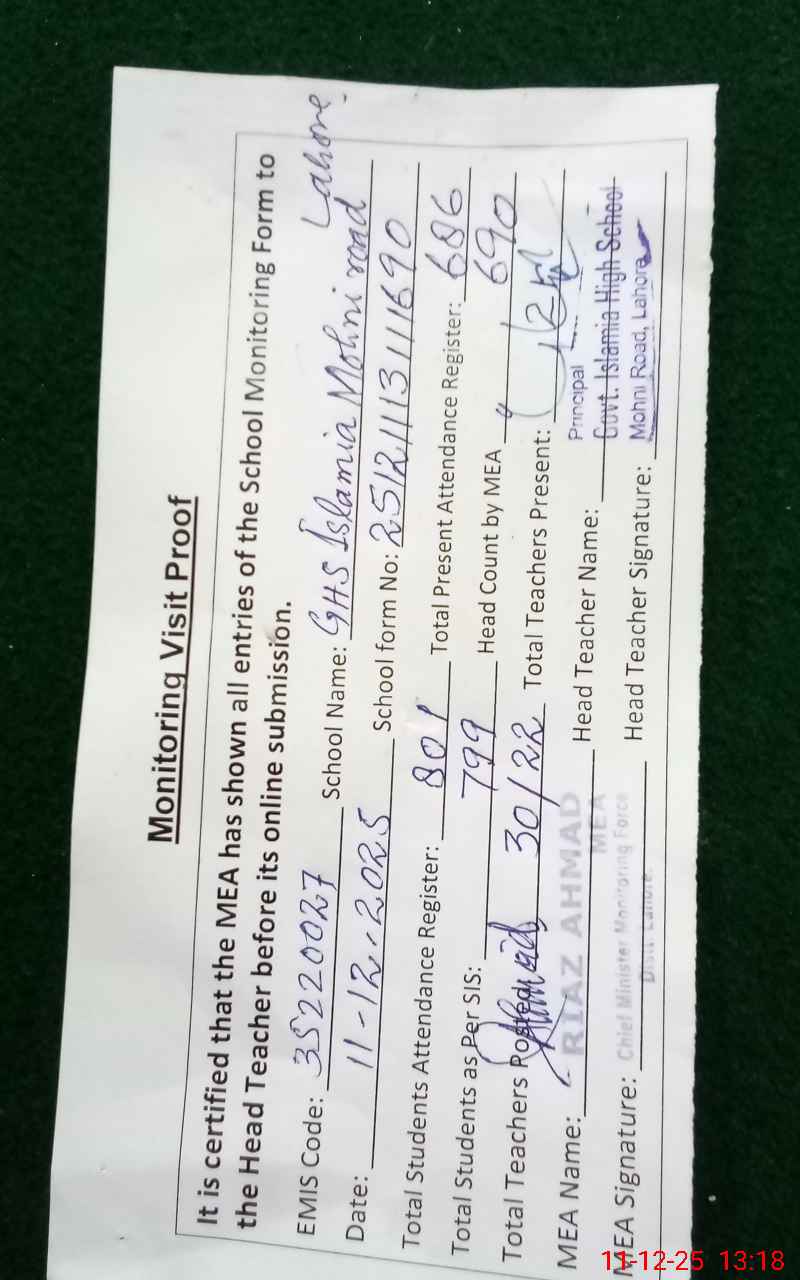 Monitoring Visit Proof
It is certified that the MEA has shown all entries of the School Monitoring Form to
the Head Teacher before its online submission.
EMIS Code: 35220027 School Name: GHS Islamia Mohni road Lahore.
Date: 11-12-2025 School form No: 2512111311690
Total Students Attendance Register: 801 Total Present Attendance Register: 686
Total Students as Per SIS: 799 Head Count by MEA 690
Total Teachers Posted: 30/22 Total Teachers Present:
MEA Name: RIAZ AHMAD Head Teacher Name: Principal
MEA
Govt. Islamia High School
MEA Signature: Chief Minister Monitoring Force Head Teacher Signature: Mohni Road, Lahore
Distt. Lahore.
11-12-25 13:18